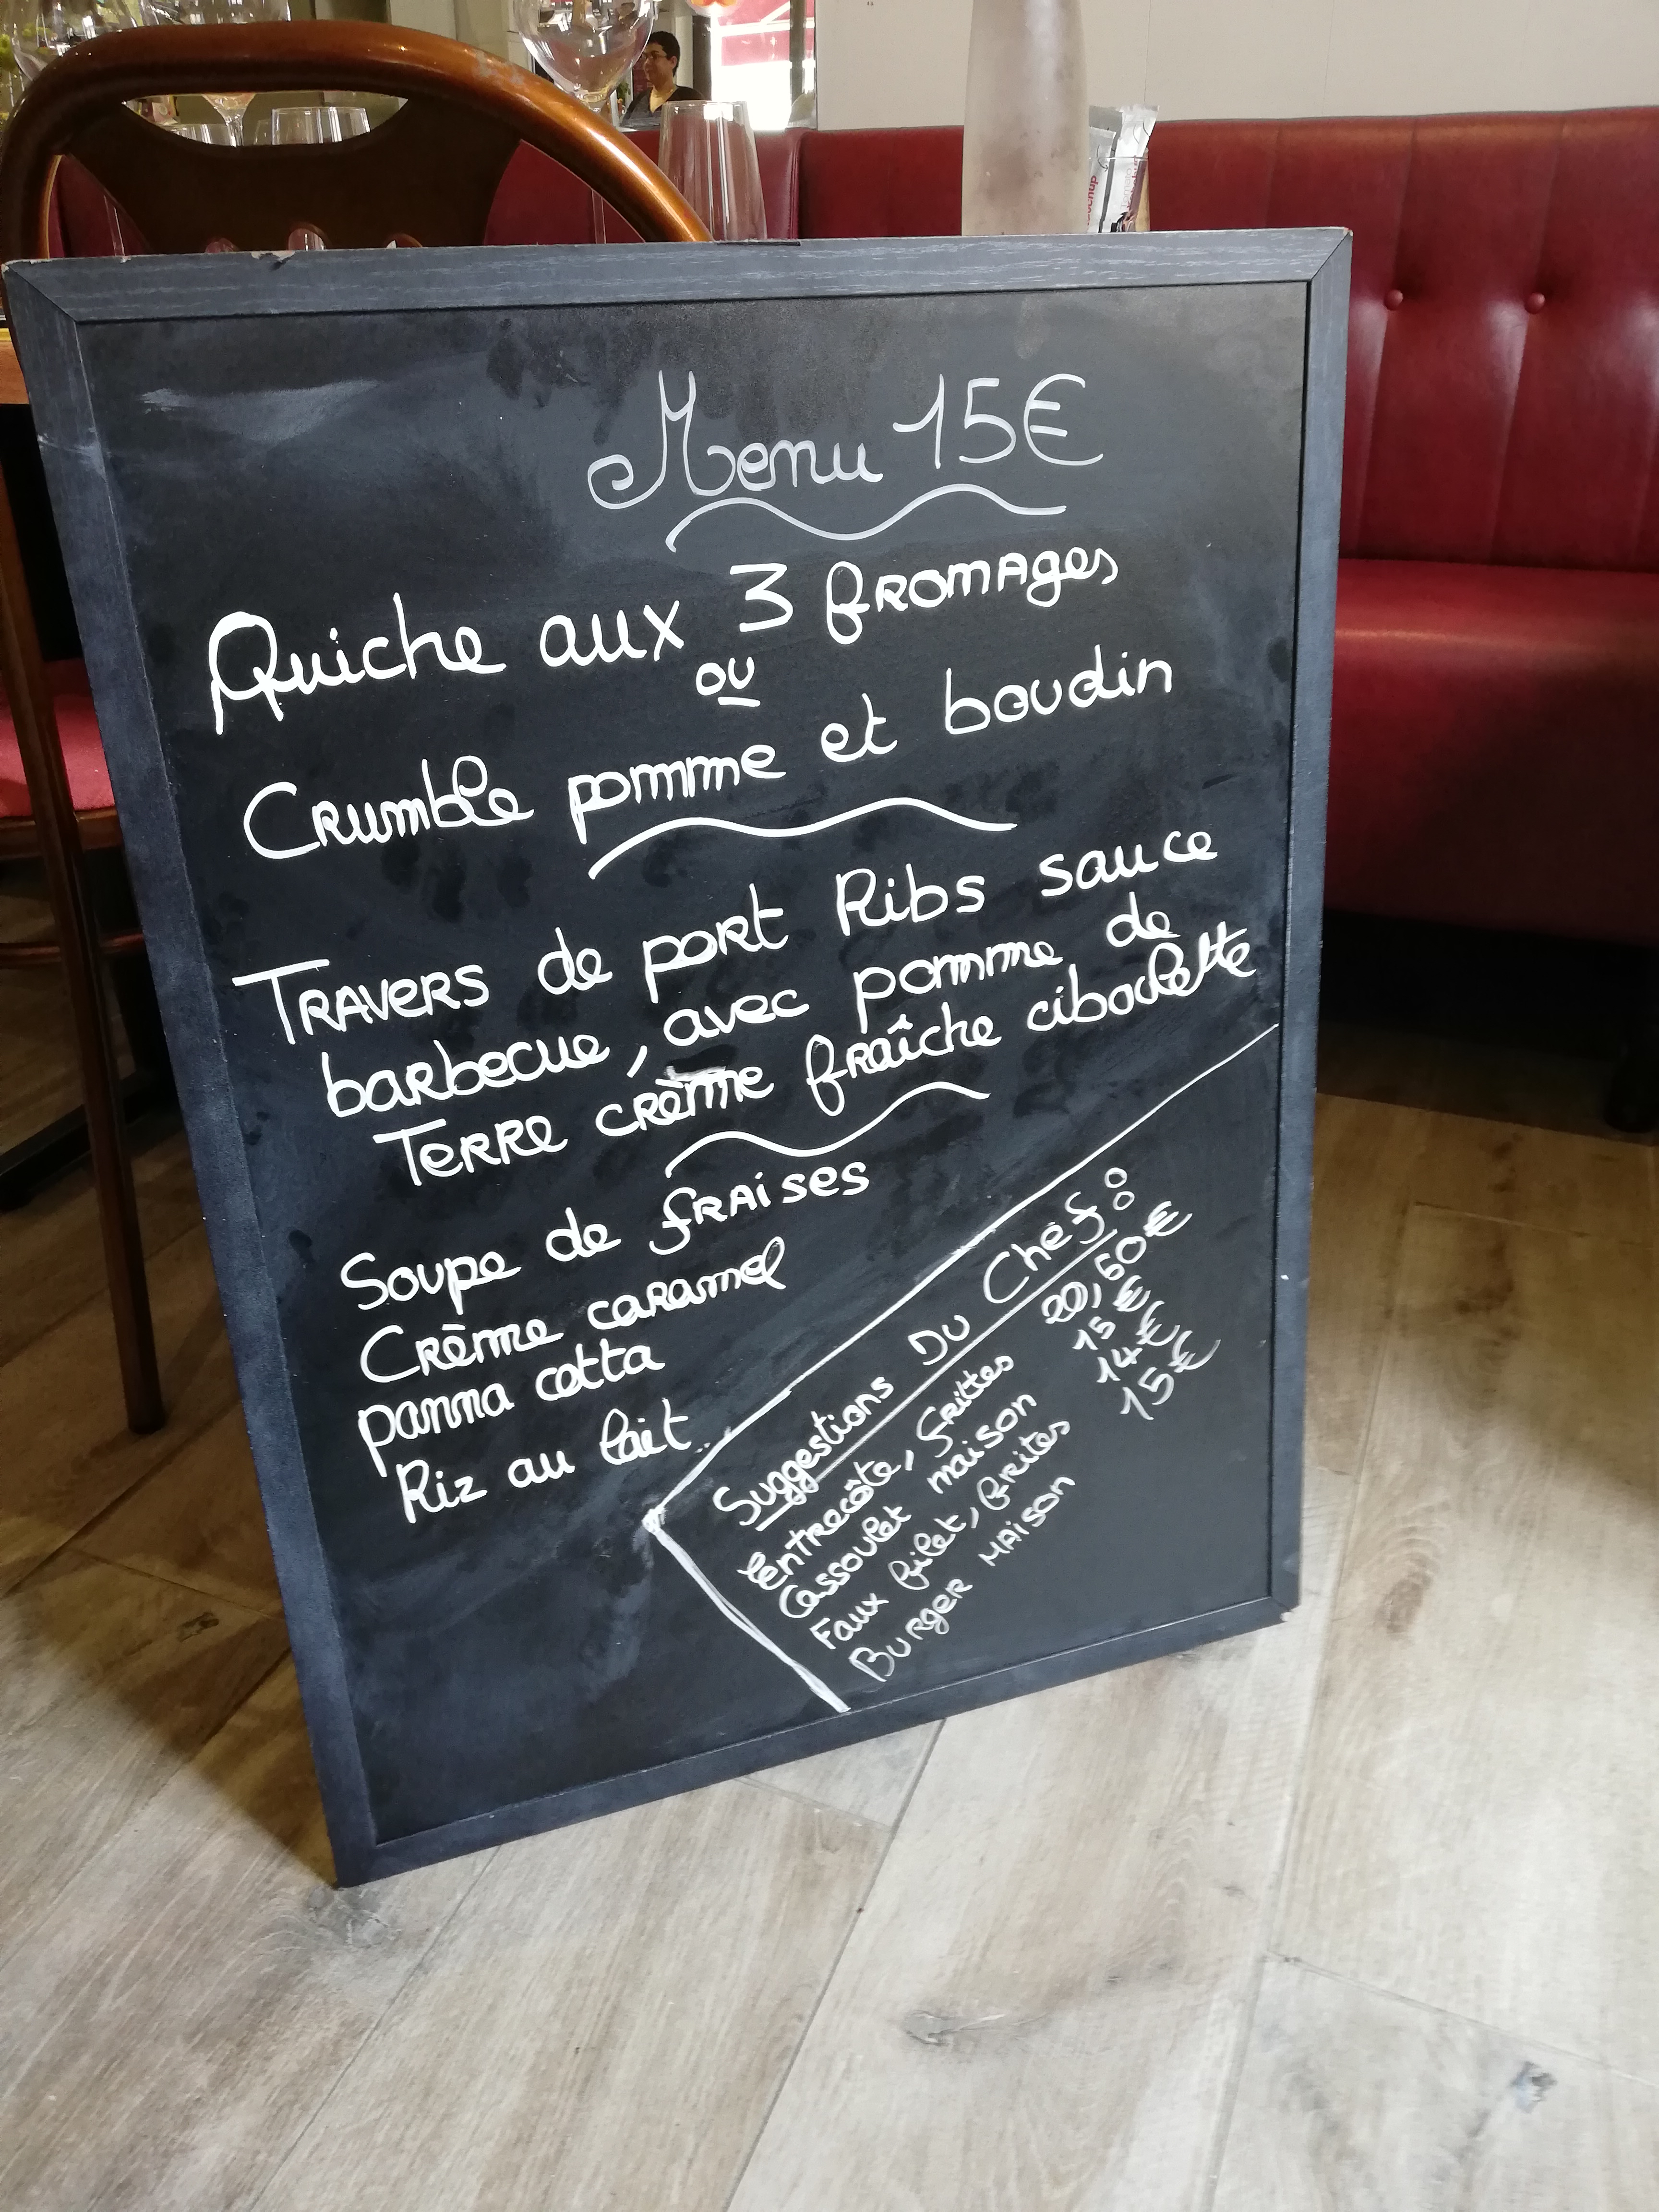 Menu 15€
Quiche aux 3 fromages
ou
Crumble pomme et boudin
Travers de port Ribs sauce
barbecue, avec pomme de
Terre crème fraîche ciboulette
Soupe de fraises
Crème caramel
panna cotta
Riz au lait
Suggestions Du Chef:
Entrecôte, frittes 20,50€
Cassoulet maison 15€
Faux filet, frites 14€
Burger maison 15€